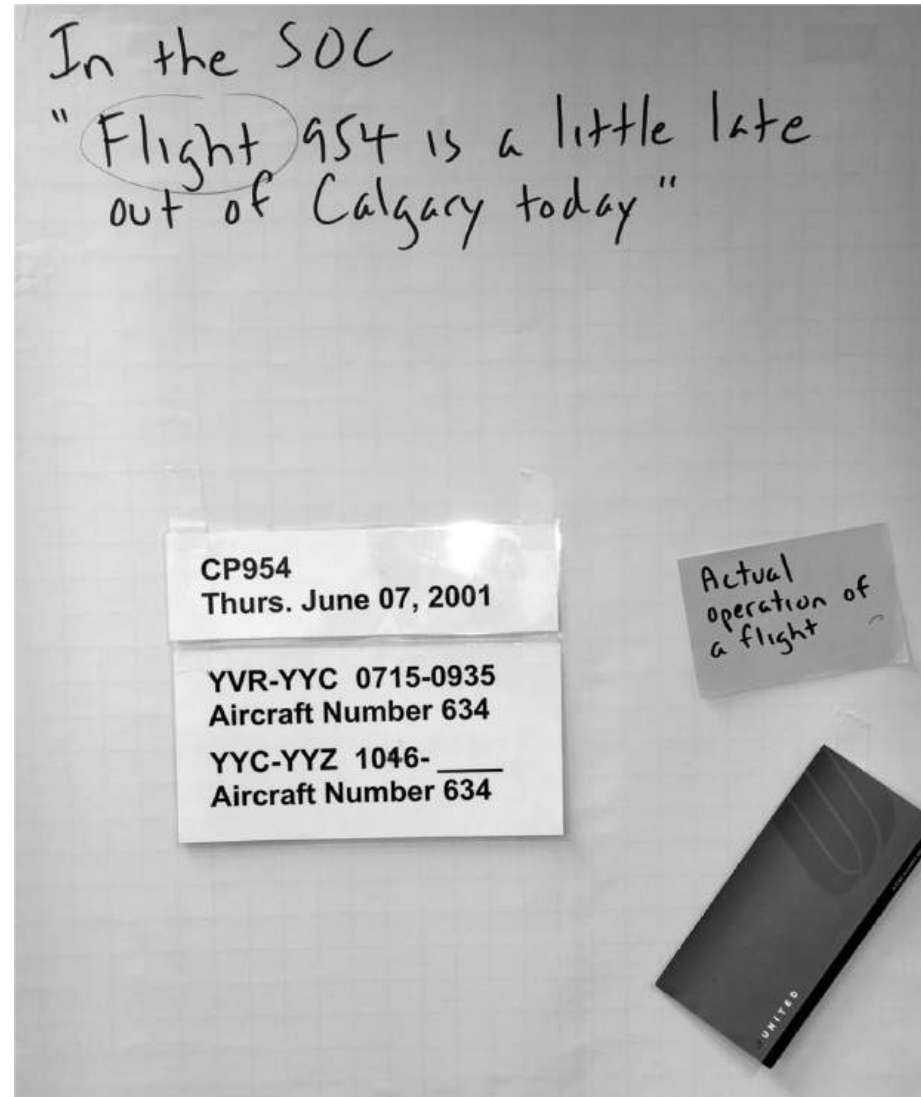 In the SOC
"Flight 954 is a little late
out of Calgary today"
CP954
Thurs. June 07, 2001
YVR-YYC 0715-0935
Aircraft Number 634
YYC-YYZ 1046- ____
Aircraft Number 634
Actual
operation of
a flight
UNITED